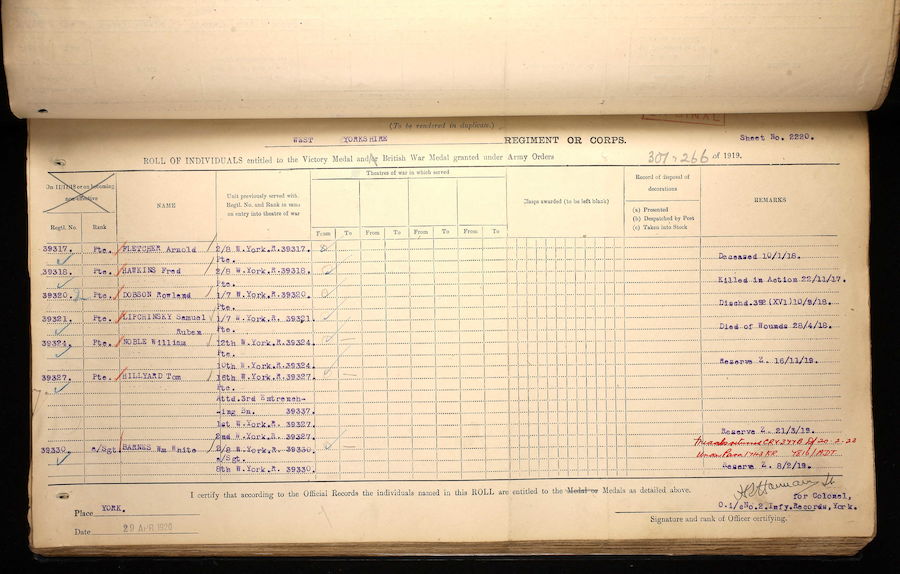 (To be rendered in duplicate.)
WEST YORKSHIRE REGIMENT OR CORPS. Sheet No. 2220.
ROLL OF INDIVIDUALS entitled to the Victory Medal and/or British War Medal granted under Army Orders 301-266 of 1919.
On 11/11/18 or on becoming non-effective
Regtl. No. Rank NAME Unit previously served with. Regtl. No. and Rank in same on entry into theatre of war
Theatres of war in which served
From To From To From To From To
Clasps awarded (to be left blank)
Record of disposal of decorations
(a) Presented
(b) Despatched by Post
(c) Taken into Stock
REMARKS
39317. Pte. FLETCHER Arnold 2/8 W.York.R.39317.
Pte. Deceased 10/1/18.
39318. Pte. HAWKINS Fred 2/8 W.York.R.39318.
Pte. Killed in Action 22/11/17.
39320. Pte. DOBSON Rowland 1/7 W.York.R.39320.
Pte. Dischd.392(XVI)10/9/18.
39321. Pte. LIPCHINSKY Samuel 1/7 W.York.R.39321.
Ruben Pte. Died of Wounds 28/4/18.
39324. Pte. NOBLE William 12th W.York.R.39324.
Pte.
10th W.York.R.39324. Reserve Z. 16/11/19.
39327. Pte. HILLYARD Tom 16th W.York.R.39327.
Pte.
Attd.3rd Entrench-
-ing Bn. 39337.
1st W.York.R. 39327.
2nd W.York.R. 39327. Reserve Z. 21/3/19.
39330. a/Sgt. BARNES Wm White 2/8 W.York.R. 39330.
a/Sgt.
8th W.York.R. 39330. Reserve Z. 8/2/19.
I certify that according to the Official Records the individuals named in this ROLL are entitled to the Medal or Medals as detailed above.
Place YORK.
for Colonel,
O.i/c No.2.Infy.Records,York.
Date 29 APR 1920
Signature and rank of Officer certifying.